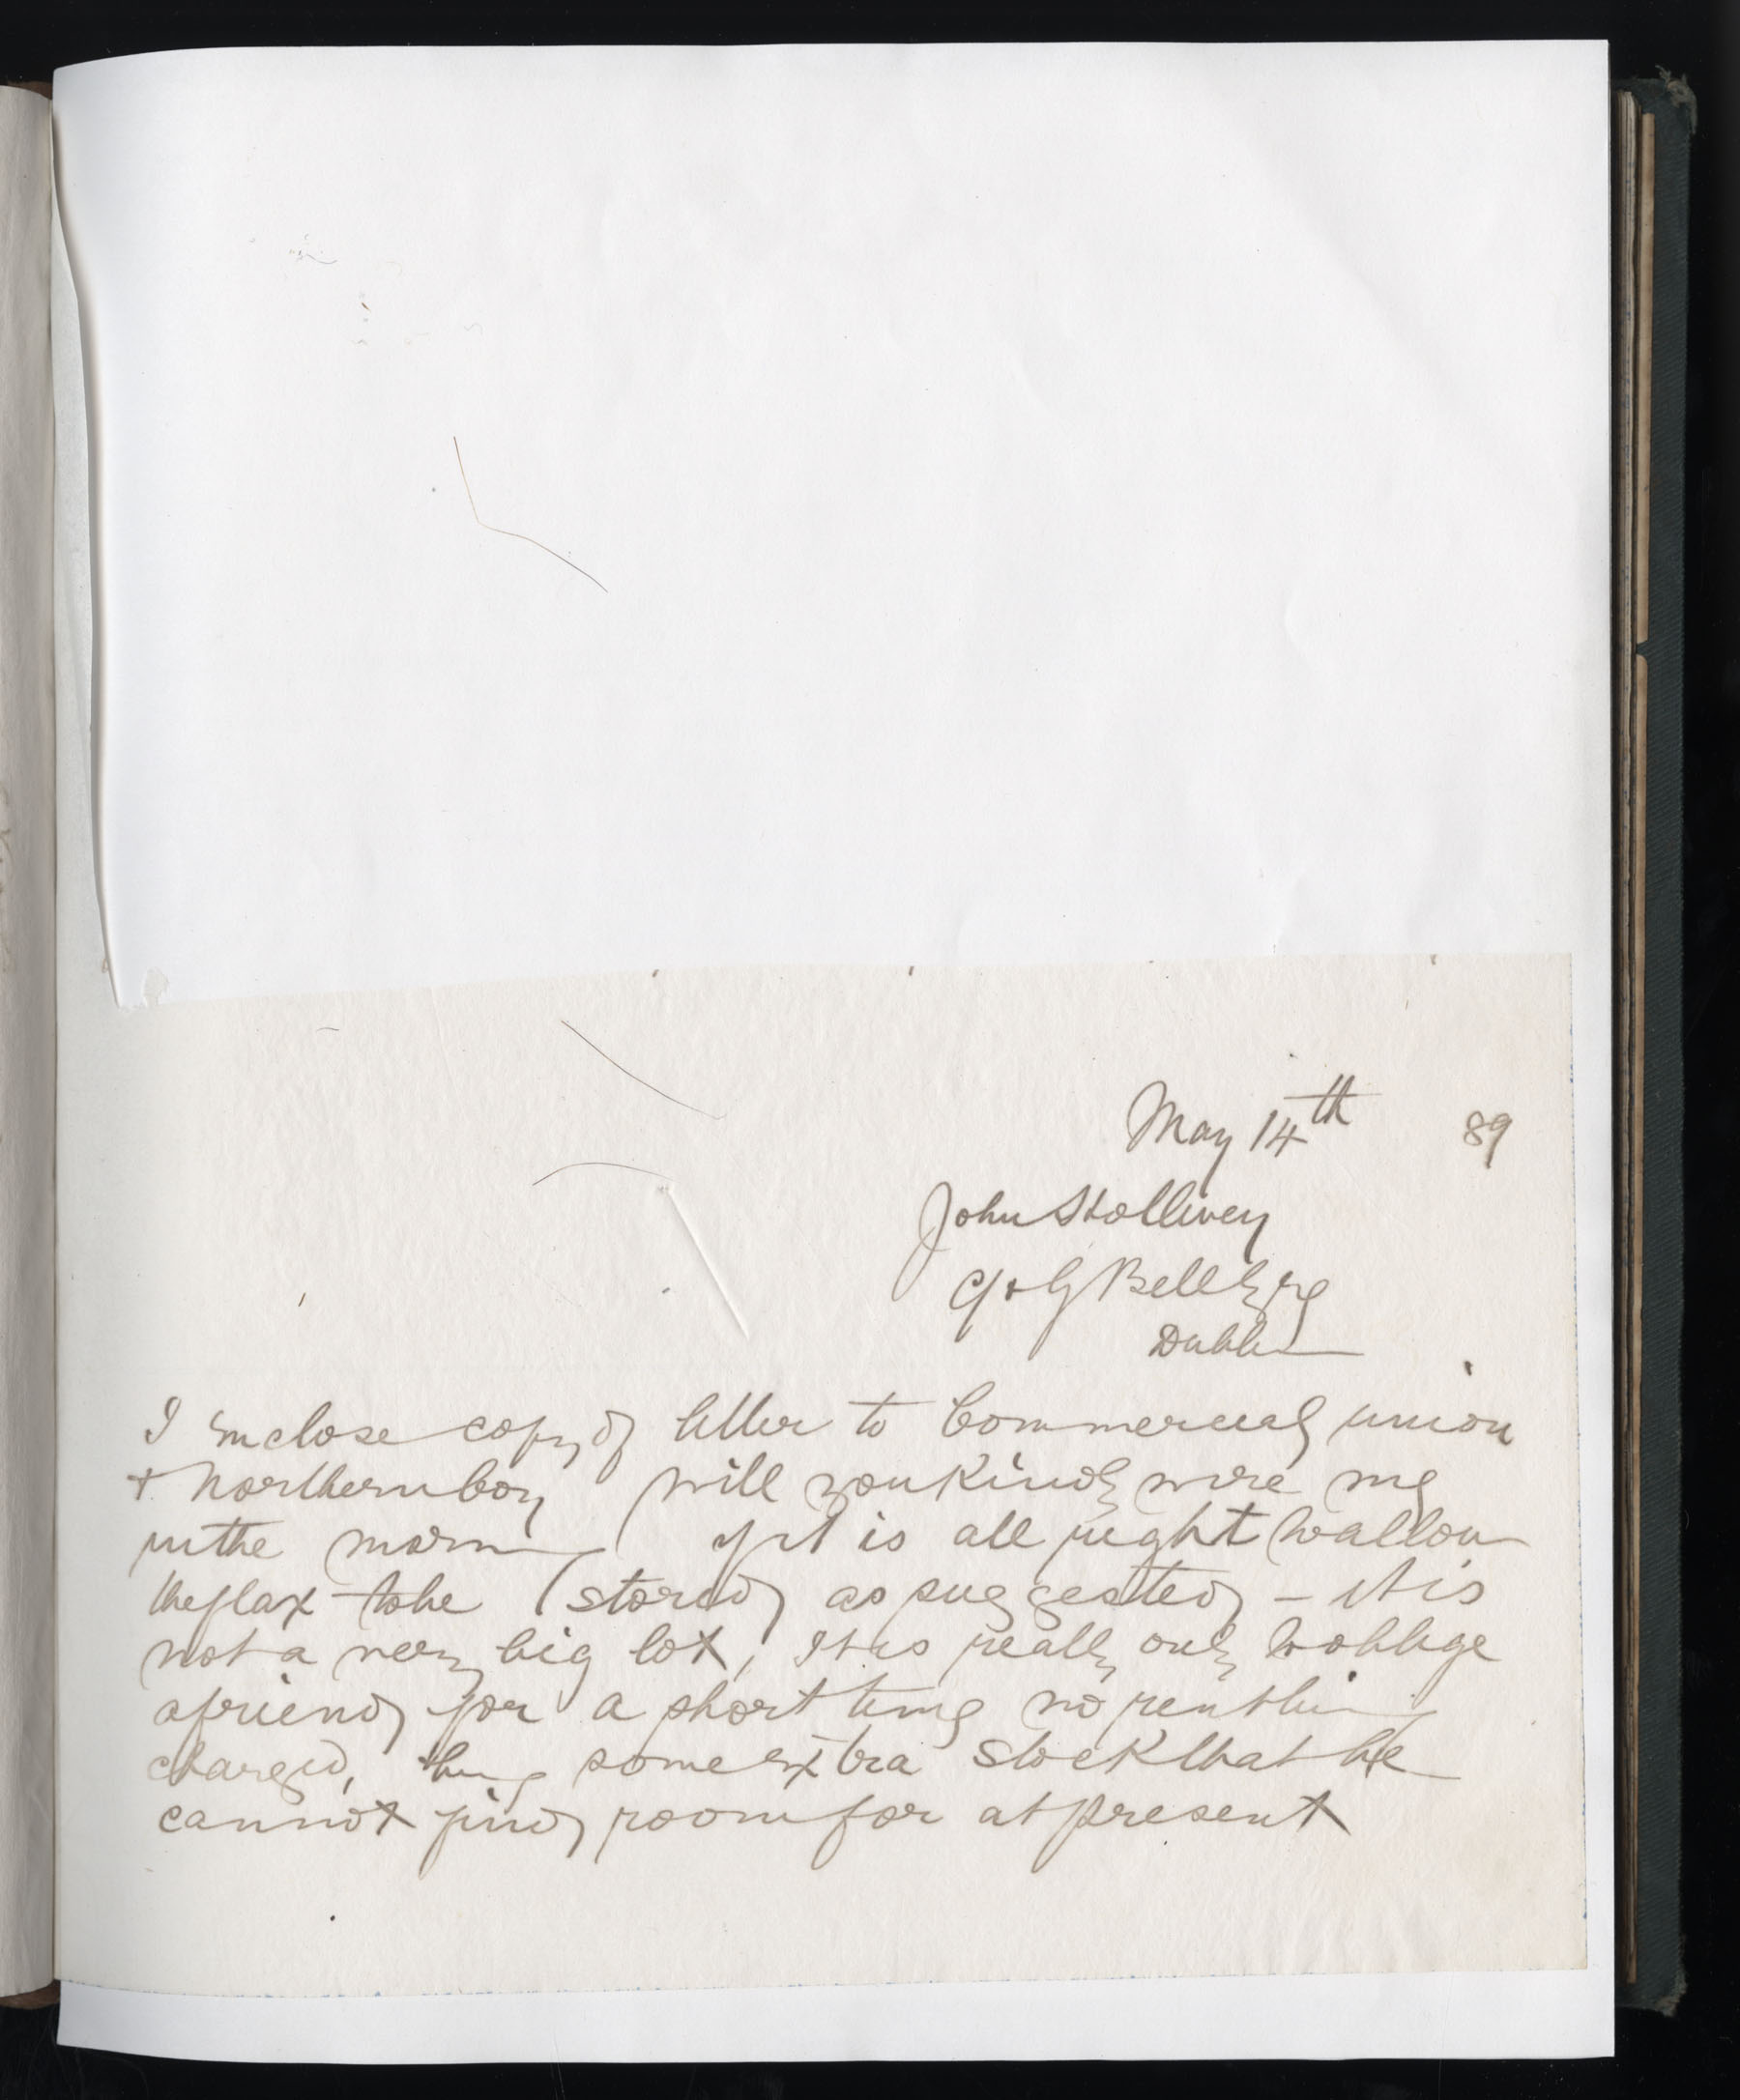 May 14th 89
John Stollivey
C/o G Bell Esq
Dublin
I enclose copy of letter to Commercial union
+ Northern Coy will you kindly wire me
in the morning if it is all right to allow
the flax to be stored as suggested - it is
not a very big lot, It is really only to oblige
a friend for a short time no rent being
charged, being some extra stock that he
cannot find room for at present